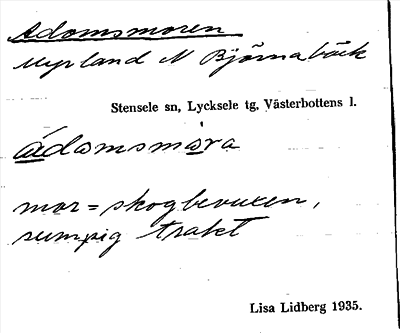 Adomsmoren
Myrland N Björnabäck
Stensele sn, Lycksele tg, Västerbottens l.
ádamsmȯra
mor = skogbevuxen,
sumpig trakt
Lisa Lidberg 1935.